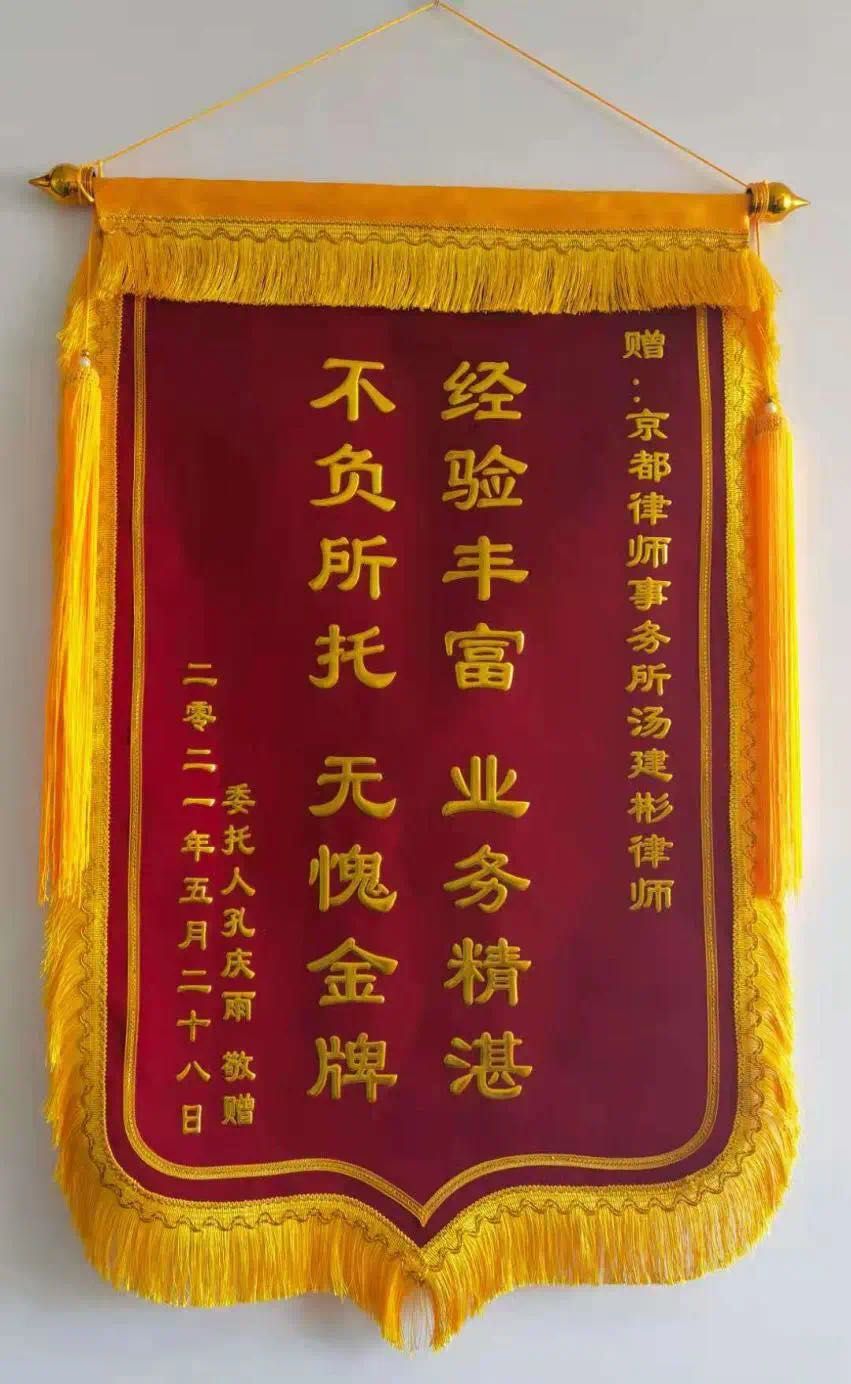 赠：京都律师事务所汤建彬律师
经验丰富 业务精湛
不负所托 无愧金牌
委托人孔庆雨 敬赠
二零二一年五月二十八日